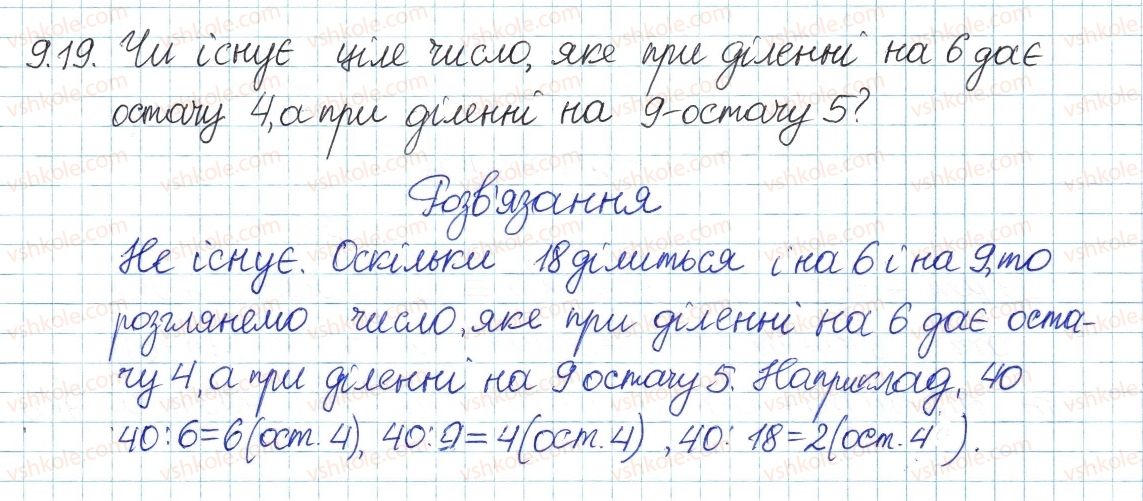 9.19. Чи існує ціле число, яке при діленні на 6 дає
остачу 4, а при діленні на 9-остачу 5?
Розв'язання
Не існує. Оскільки 18 ділиться і на 6 і на 9, то
розглянемо число, яке при діленні на 6 дає оста-
чу 4, а при діленні на 9 остачу 5. Наприклад, 40
40:6=6(ост. 4), 40:9=4(ост.4) , 40: 18=2(ост.4 ).